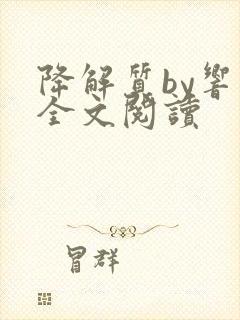 降解質by響
全文閱讀
冒群